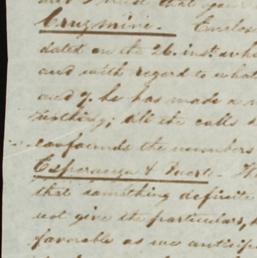 that your
Cruz mine. Enclos
dated on the 26. inst. whe
and with regard to what
and y. he has made a
nothing; all the calls
confounds the numbers
Esperanza & Suerte.
that something definite
not give the particulars,
favorable as we anticip